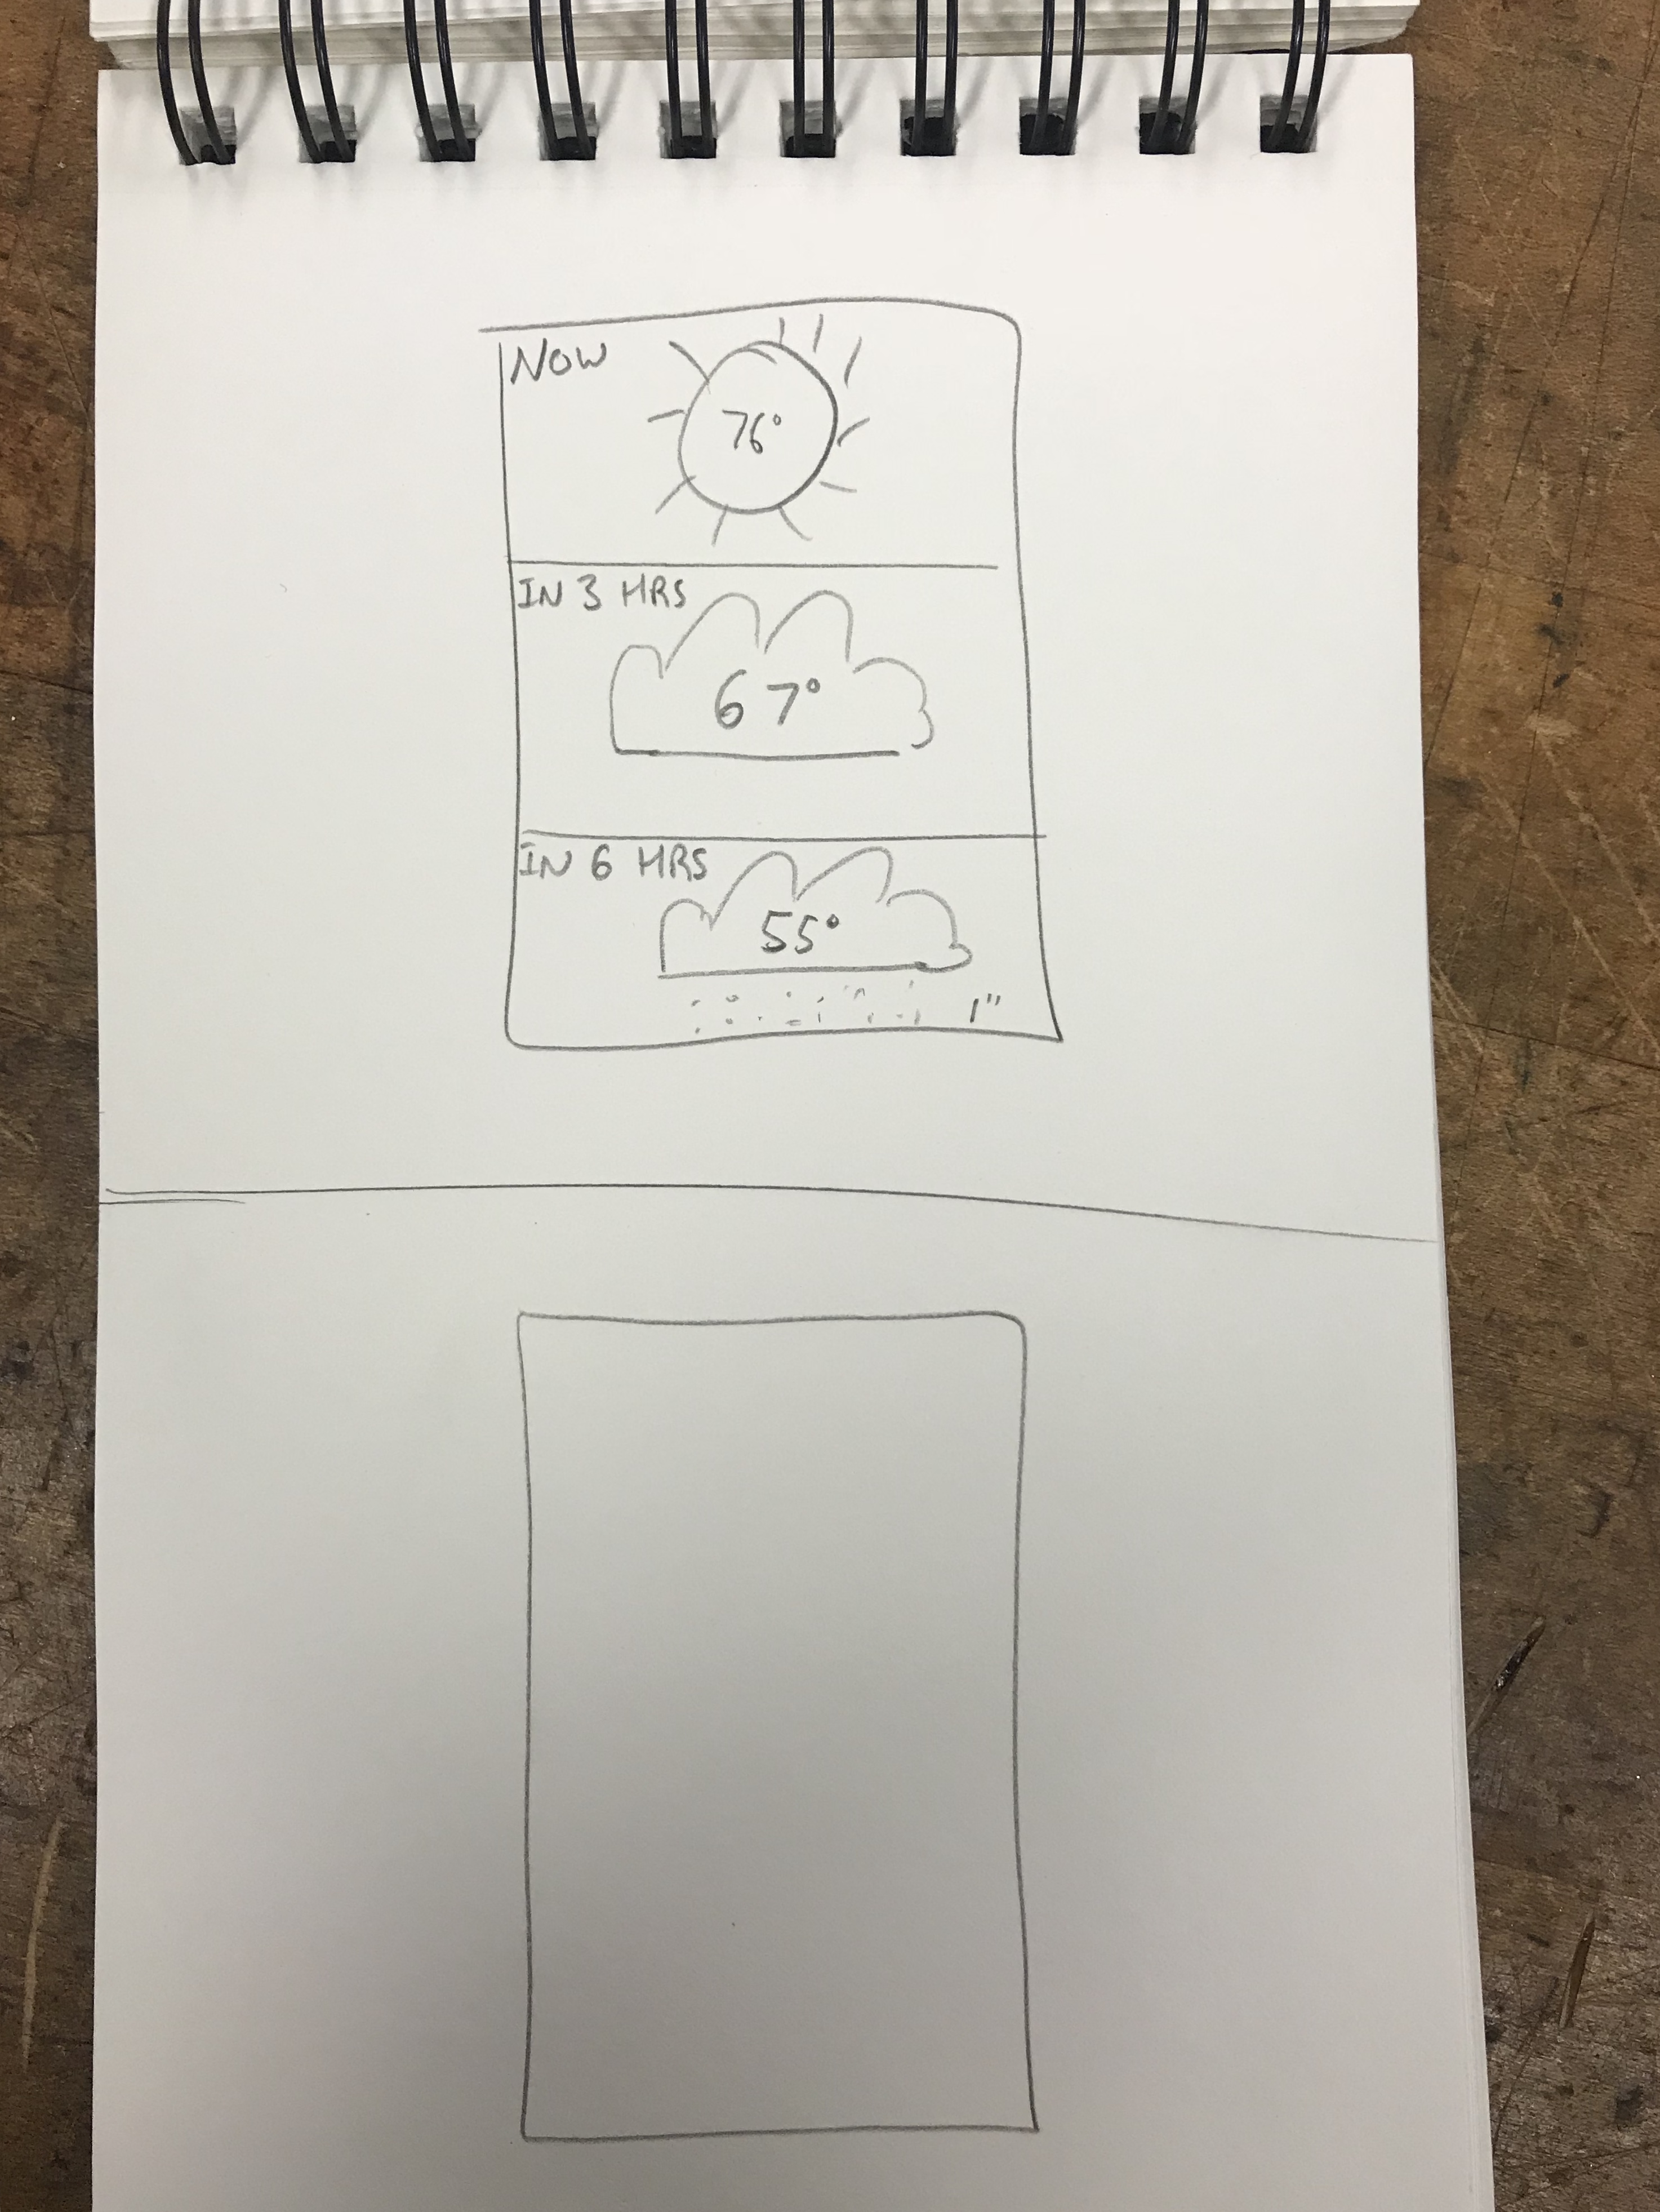 NOW
76°
IN 3 HRS
67°
IN 6 HRS
55°
1"